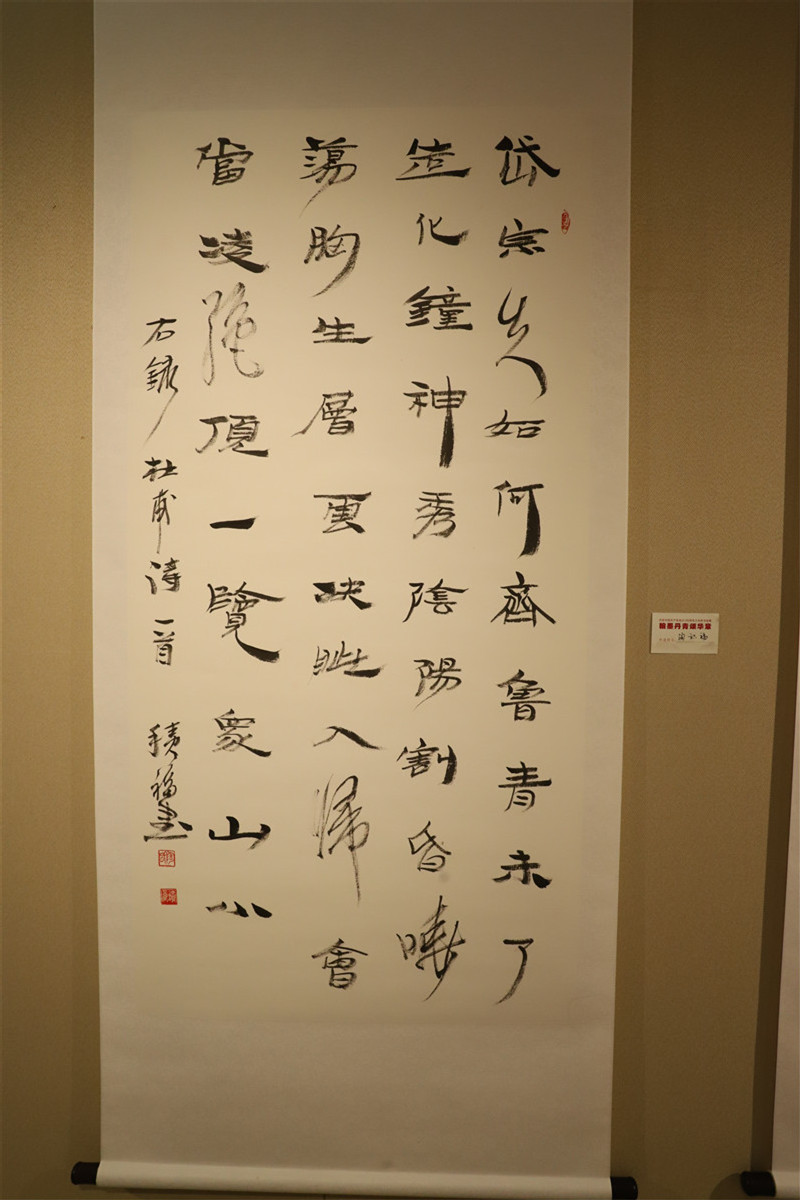 岱宗夫如何齊魯青未了
造化鐘神秀陰陽割昏曉
蕩胸生層雲决眦入歸會
當凌絶頂一覽衆山小
右録杜甫詩一首 積福書
翰墨丹青颂华章